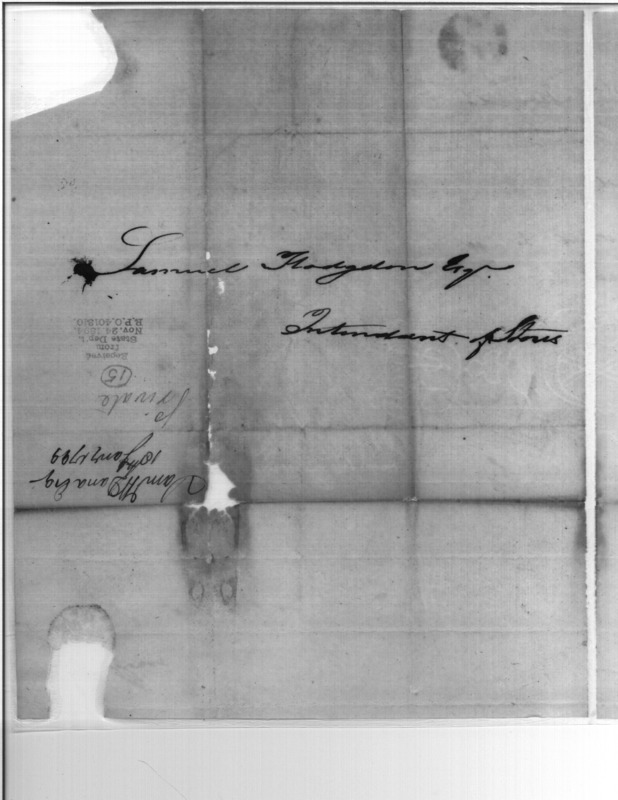 Samuel Hodgdon Esqr.
Intendant of Stores
Received
from
State Dep't.
Nov. 24 1894.
R.P.O. 401810.
15
Private
Sam W Dana Esq
10th Jany 1799